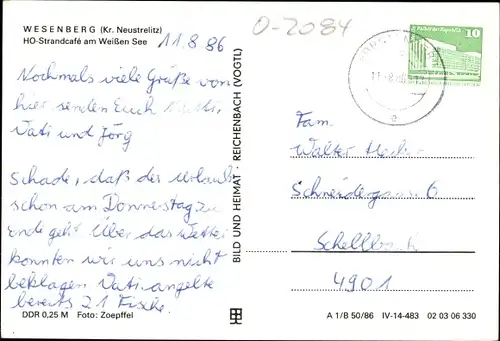 WESENBERG (Kr. Neustrelitz)
HO-Strandcafé am Weißen See
11.8.86
O-2084
10
Nochmals viele Grüße von
hier senden Euch
Vati und Jörg
Schade, daß der Urlaub
schon am Donnerstag zu
Ende geht. Über das Wetter
konnten wir uns nicht
beklagen. Vati angelte
bereits 21 Fische.
DDR 0,25 M Foto: Zoepffel
BILD UND HEIMAT REICHENBACH (VOGTL)
Fam.
Walter
Schneidergasse 6
4901
A 1/B 50/86 IV-14-483 02 03 06 330